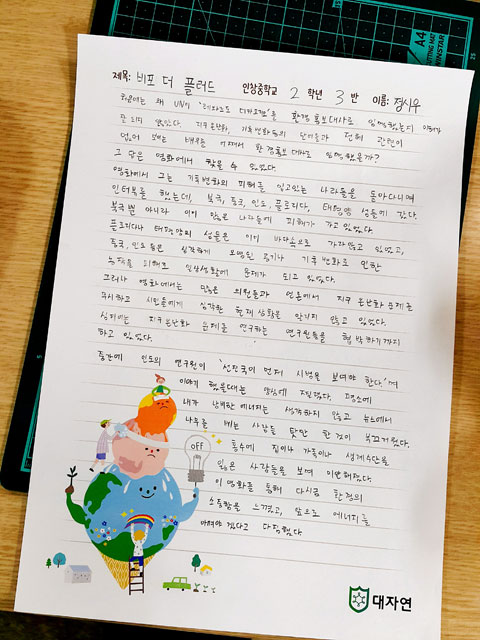 제목: 비포 더 플러드 인창중학교 2 학년 3 반 이름: 정시우
처음에는 왜 UN이 '레오나르도 디카프리오'를 환경 홍보대사로 임명했는지 이해가
안 되지 않았다. 지구온난화, 기후변화등의 단어들과 전혀 관련이
없어 보이는 배우를 어째서 환경홍보대사로 임명했을까?
그 답은 영화에서 찾을 수 있었다.
영화에서 그는 기후변화의 피해를 입고있는 나라들을 돌아다니며
인터뷰를 했는데, 북극, 중국, 인도, 플로리다, 태평양 섬들에 간다.
북극 뿐 아니라 이미 많은 나라들에 피해가 가고 있었다.
플로리다나 태평양의 섬들은 이미 바다속으로 가라앉고 있었고,
중국, 인도 등은 심각하게 오염된 공기나 기후변화로 인한
농작물 피해로 일상생활에 문제가 되고 있었다.
그러나 영화에서는 많은 의원들과 언론에서 지구온난화 문제를
무시하고 시민들에게 심각한 현재 상황을 알리지 않고 있었다.
심지어는 지구온난화 문제를 연구하는 연구원들을 협박하기까지
하고 있었다.
중간에 인도의 연구원이 '선진국이 먼저 시범을 보여야 한다.'며
이야기 했을때는 양심에 찔렸다. 평소에
내가 낭비한 에너지는 생각하지 않고 뉴스에서
나무를 베는 사람들 탓만 한 것이 부끄러웠다.
홍수에 집이나 가족이나 생계수단을
잃은 사람들을 보며 미안해졌다.
이 영화를 통해 다시금 환경의
소중함을 느꼈고, 앞으로 에너지를
아껴야 겠다고 다짐했다.
OFF
대자연